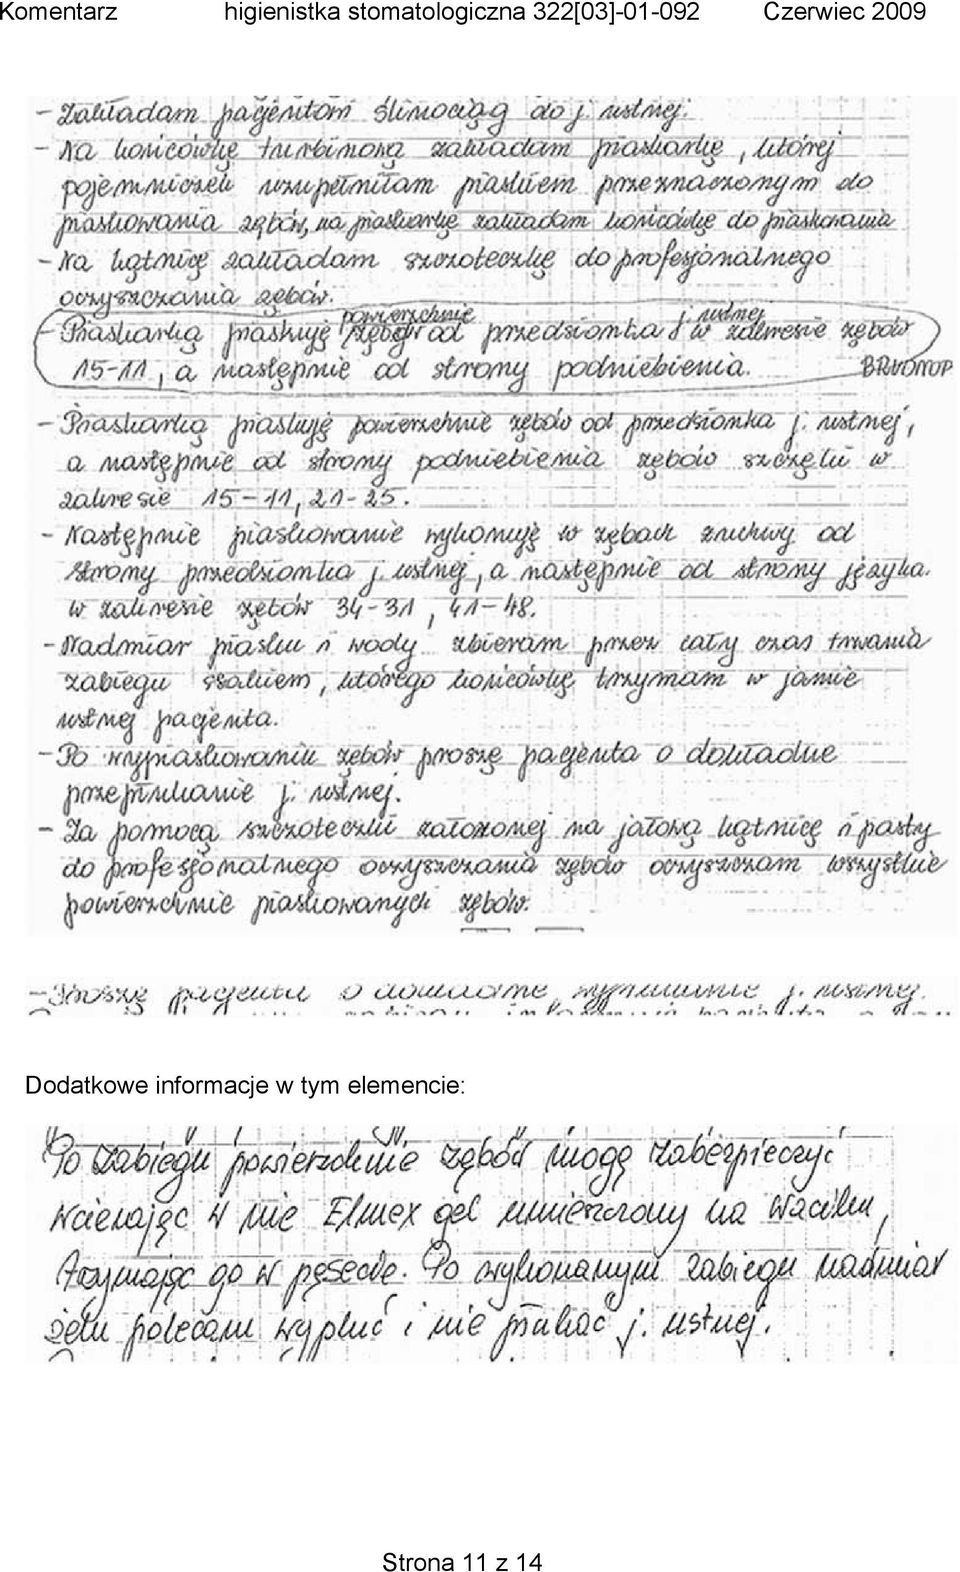 Komentarz higienistka stomatologiczna 322[03]-01-092 Czerwiec 2009
- Zakładam pacjentom ślinociąg do j. ustnej.
- Na końcówkę turbinową zakładam piaskarkę, której
pojemniczek uzupełniłam piaskiem przeznaczonym do
piaskowania zębów, na piaskarkę zakładam końcówkę do piaskowania
- Na kątnicę zakładam szczoteczkę do profesjonalnego
oczyszczania zębów.
powierzchnie j. ustnej
- Piaskarką piaskuję zębów od przedsionka w zakresie zębów
15-11, a następnie od strony podniebienia. BRUDNOPIS
- Piaskarką piaskuję powierzchnie zębów od przedsionka j. ustnej,
a następnie od strony podniebienia zębów szczęki w
zakresie 15-11, 21-25.
- Następnie piaskowanie wykonuję w zębach żuchwy od
strony przedsionka j. ustnej, a następnie od strony języka.
w zakresie zębów 34-31, 41-48.
- Nadmiar piasku i wody zbieram przez cały czas trwania
zabiegu ssakiem, którego końcówkę trzymam w jamie
ustnej pacjenta.
- Po wypiaskowaniu zębów proszę pacjenta o dokładne
przepłukanie j. ustnej.
- Za pomocą szczoteczki założonej na jałową kątnicę i pasty
do profesjonalnego oczyszczania zębów oczyszczam wszystkie
powierzchnie piaskowanych zębów.
- Proszę pacjenta o dokładne wypłukanie j. ustnej.
Dodatkowe informacje w tym elemencie:
Po zabiegu powierzchnie zębów mogę zabezpieczyć
wcierając w nie Elmex gel umieszczony na waciku,
trzymając go w pęsecie. Po wykonanym zabiegu nadmiar
żelu polecam wypluć i nie płukać j. ustnej.
Strona 11 z 14